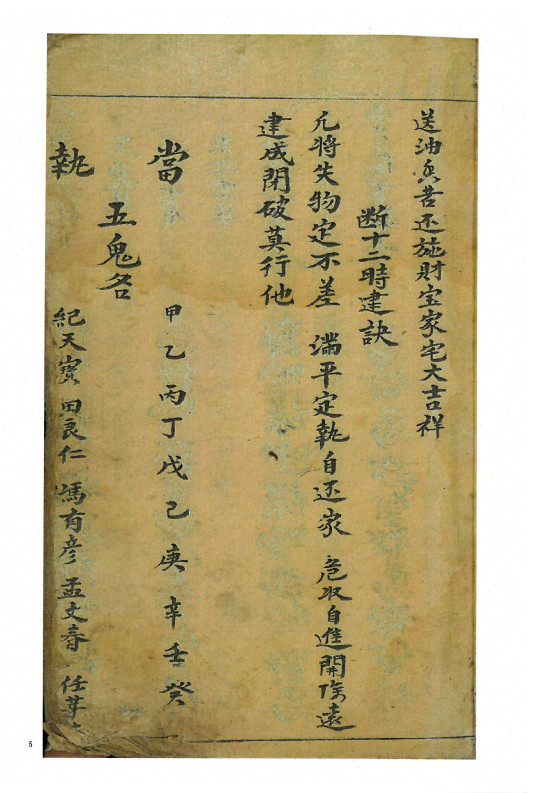 送油灸苦还施財宝家宅大吉祥
断十二時建訣
凡将失物定不差 満平定執自还家 危収自進開俟遠
建成閉破莫行他
當 甲乙丙丁戊己庚辛壬癸
五鬼名
執 紀天寳 田良仁 馮有彦 孟文春 任
5